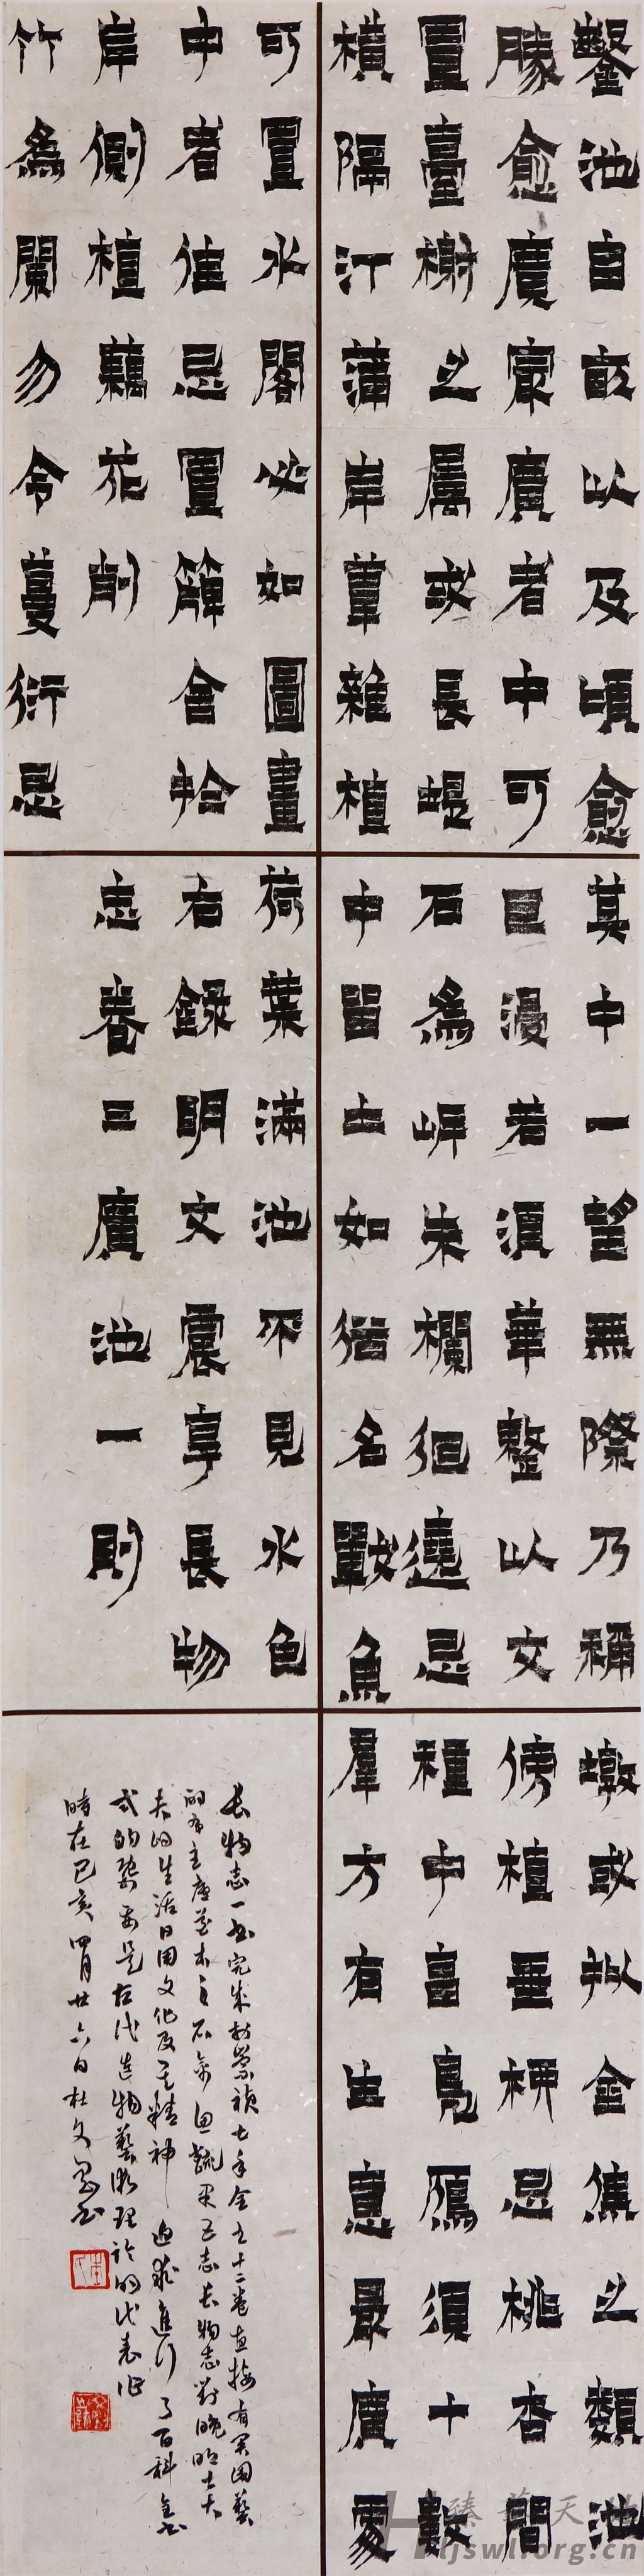 鑿池自畝以及頃愈
勝愈廣最廣者中可
置臺榭之屬或長堤
橫隔汀蒲岸葦雜植
其中一望無際乃稱
巨浸若須華整以文
石為岸朱欄徊遶忌
中留土如俗名戰魚
墩或擬金焦之類池
傍植垂柳忌桃杏間
種中畜鳧鴈須十數
羣方有生意最廣處
可置水閣必如圖畫
中者佳忌置簰舍於
岸側植藕花削
竹為闌勿令蔓衍忌
荷葉滿池不見水色
右錄明文震亨長物
志卷三廣池一則
長物志一書完成於崇禎七年全書十二卷直接有關園藝
的有室廬花木水石禽魚蔬果五志長物志對晚明士大
夫的生活日用文化及其精神追求進行了百科全書
式的概要是古代造物藝術理論的代表作
時在己亥四月廿六日杜文書
ljswl.org.cn